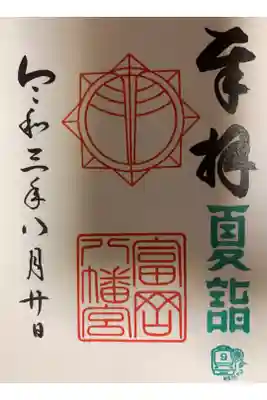 奉拝
夏詣
9
富岡
八幡宮
令和三年八月廿日